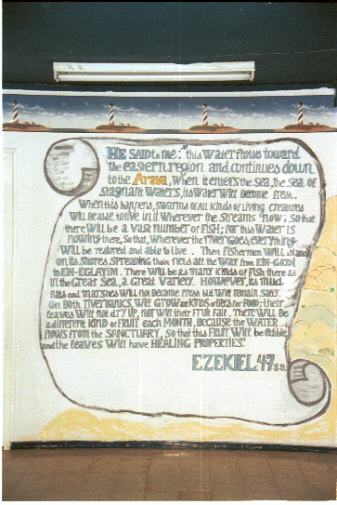 HE SAID to me: "this WATER flows toward
the eastern region and continues down
to the Arava, When it enters the Sea, the Sea of
stagnant WATERS, its WATER Will Become Fresh.
When this happens, swarms of all kinds of living creatures
Will Be able to live in it Wherever the Streams flow; So that
there Will Be a VAST number of FISH; for this WATER is
flowing there, So that, Wherever the river goes, everything
Will Be restored and able to live. Then Fishermen Will stand
on its Shores Spreading their nets all the WAY from EIN-GEDI
to EIN-EGLAYIM. There Will Be as many Kinds of Fish there as
in the Great Sea, a Great Variety. However, its mud
flats and marshes Will not Become Fresh but Will remain Salty
On Both River Banks, Will Grow all KINDS of trees for FOOD; their
leaves Will not dry up, nor Will their Fruit fail. There Will Be
a different KIND of FRUIT each MONTH, Because the WATER
flows from the SANCTUARY, So that this FRUIT Will Be edible
and the leaves Will have HEALING PROPERTIES."
EZEKIEL 47